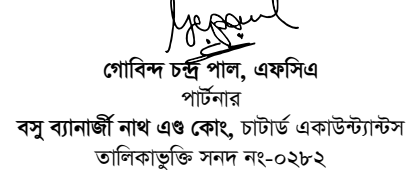 গোবিন্দ চন্দ্র পাল, এফসিএ
পার্টনার
বসু ব্যানার্জী নাথ এণ্ড কোং, চাটার্ড একাউন্ট্যান্টস
তালিকাভুক্তি সনদ নং-০২৮২